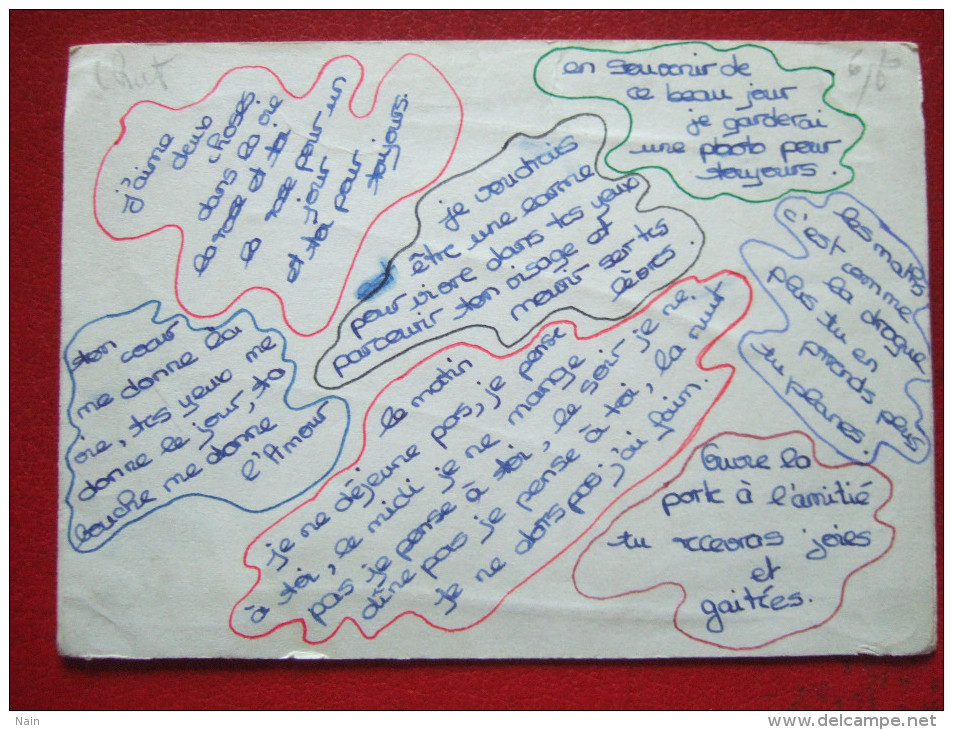 j'aime
deux
choses
dans la vie
la rose et toi
la rose pour un
jour
et toi pour
toujours.
en souvenir de
ce beau jour
je garderai
une photo pour
toujours.
je voudrais
être une larme
pour vivre dans tes yeux
parcourir ton visage et
mourir sur tes
lèvres.
les maths
c'est comme
la drogue
plus tu en
prends plus
tu planes.
ton
coeur
me donne la
vie, tes yeux me
donne le jour, ta
bouche me donne
l'Amour
le matin
je ne déjeune pas, je pense
à toi, le midi je ne mange
pas je pense à toi, le soir je ne
dine pas je pense à toi, la nuit
je ne dors pas j'ai faim.
Ouvre la
porte à l'amitié
tu recevras joies
et
gaitées.
Nain
www.delcampe.net